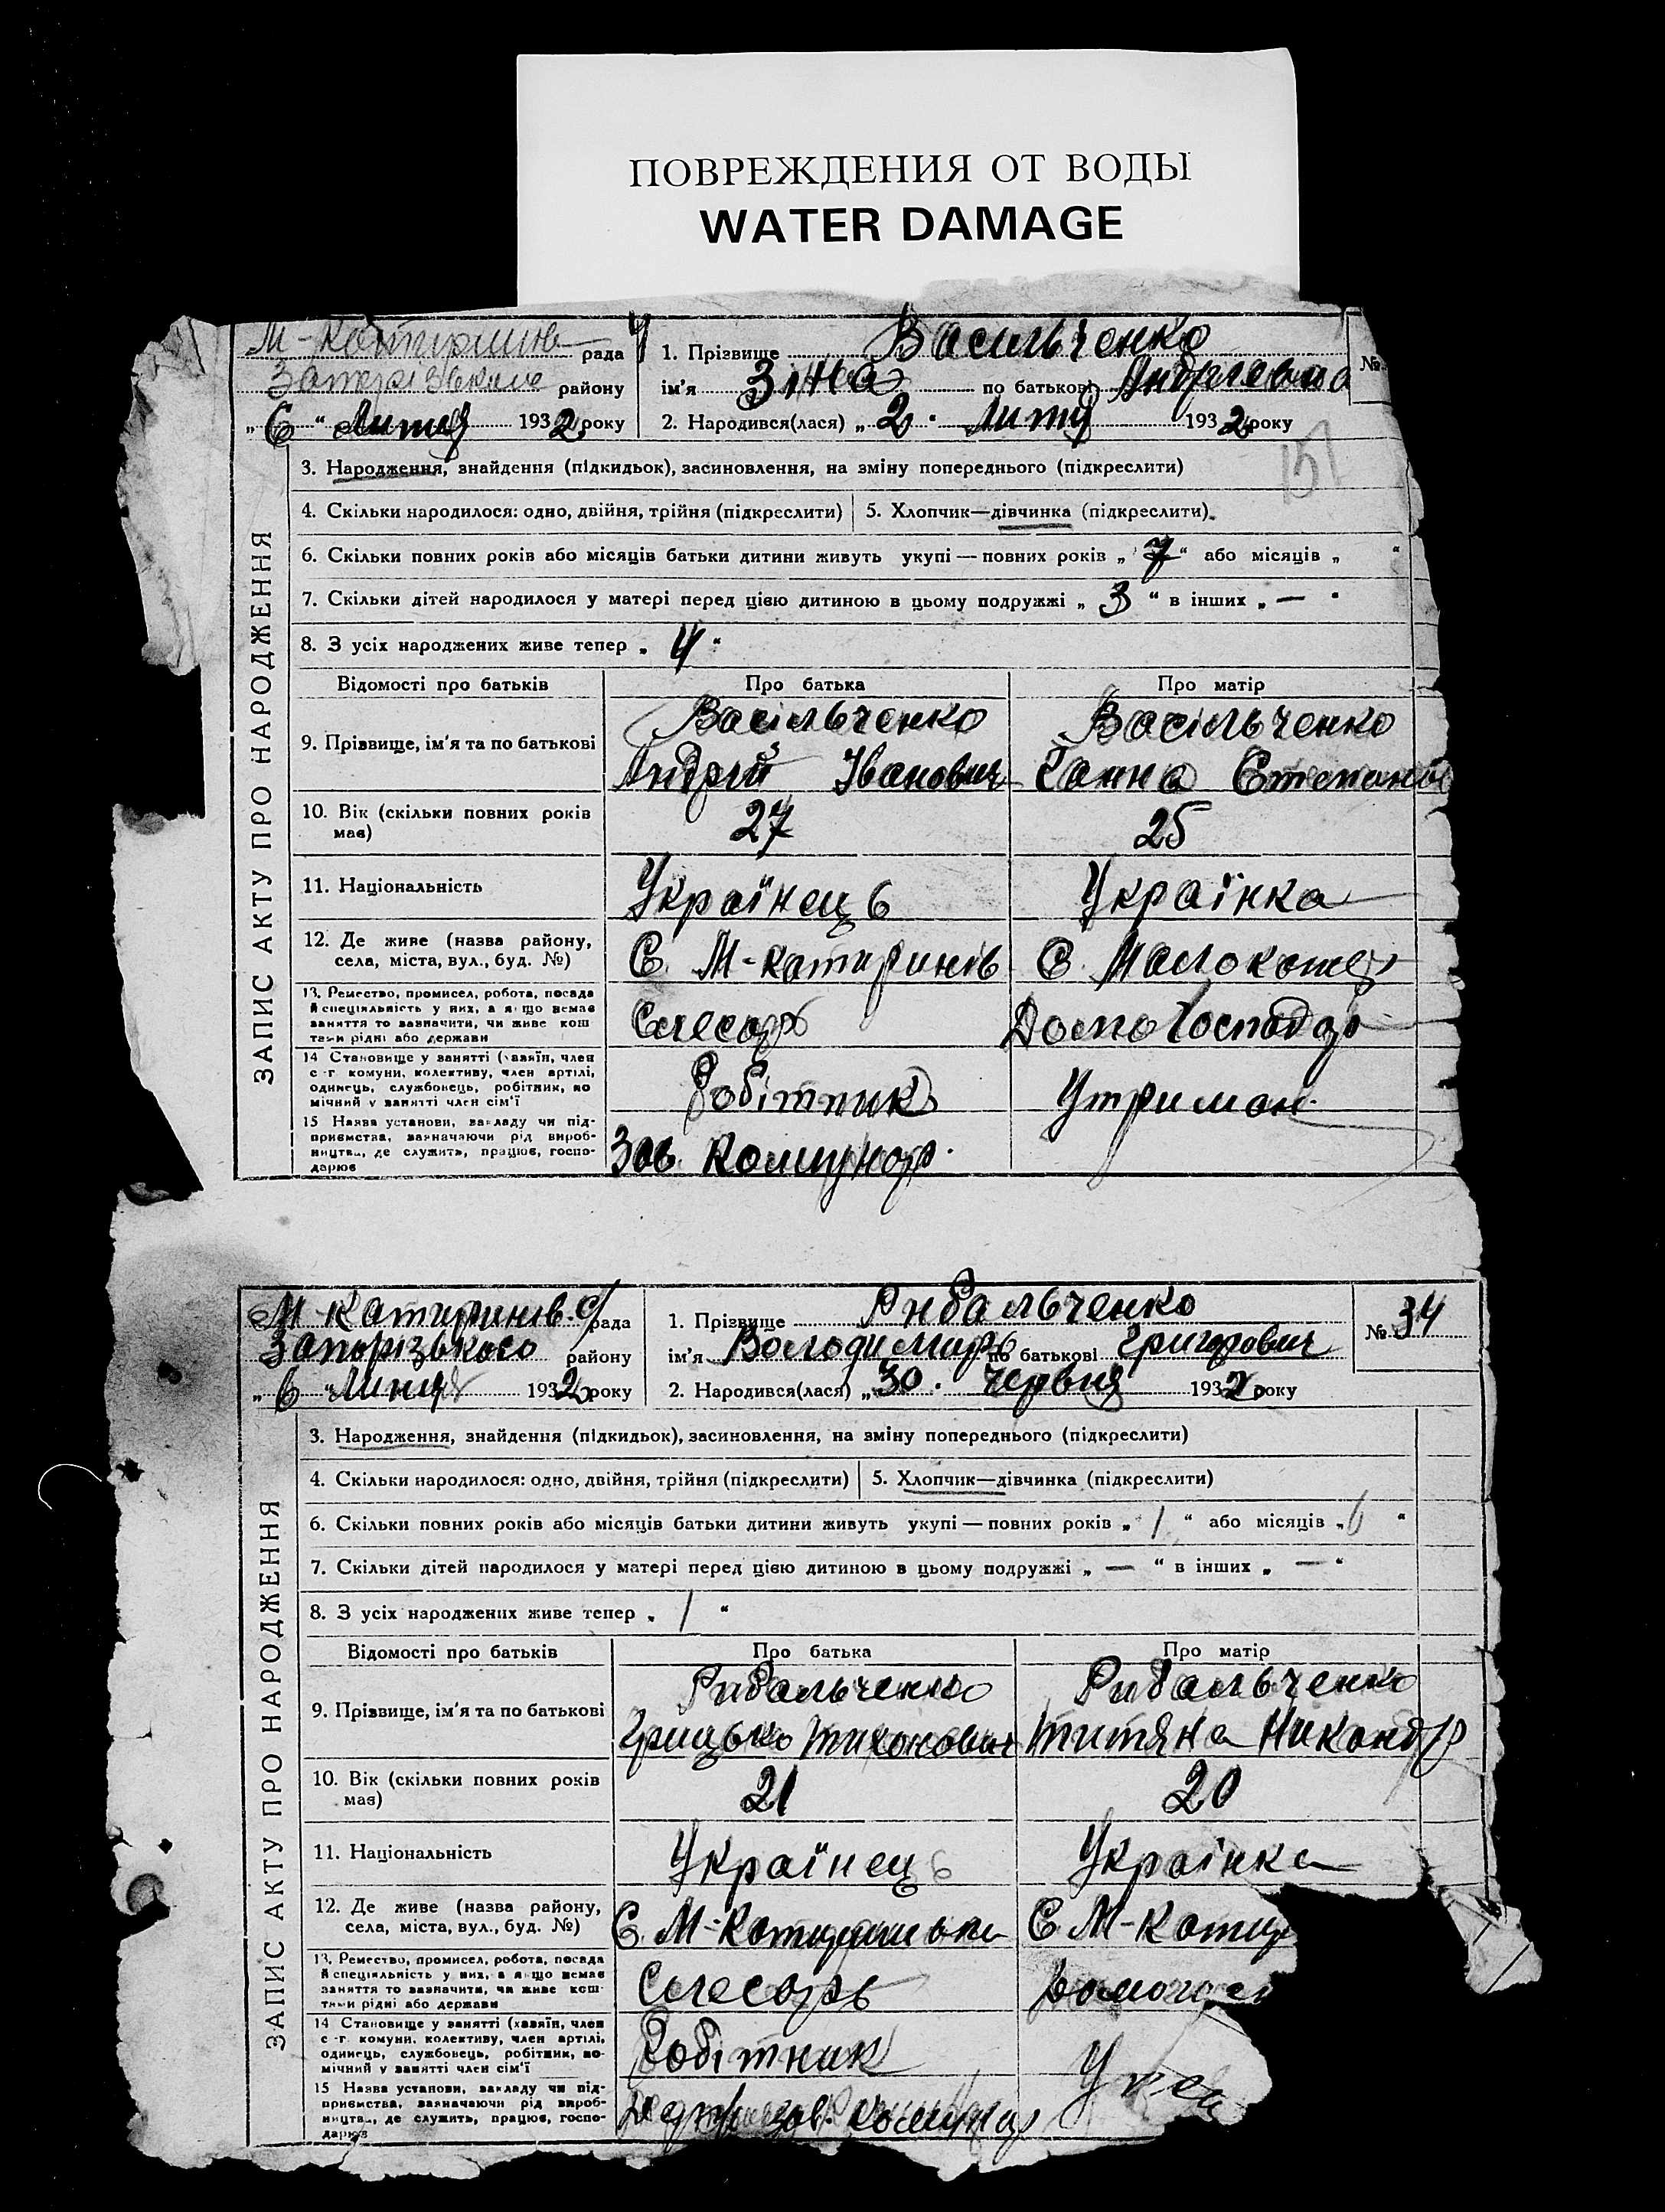 ПОВРЕЖДЕНИЯ ОТ ВОДЫ
WATER DAMAGE
рада
1. Прізвище Васильченко
№
району
ім'я Зіна по батькові Андріевна
„6“ Лютця 1932 року
2. Народився(лася) „2“ Лютц 1932 року
157
ЗАПИС АКТУ ПРО НАРОДЖЕННЯ
3. Народження, знайдення (підкидьок), засиновлення, на зміну попереднього (підкреслити)
4. Скільки народилося: одно, двійня, трійня (підкреслити)
5. Хлопчик—дівчинка (підкреслити).
6. Скільки повних років або місяців батьки дитини живуть укупі — повних років „7“ або місяців „ “
7. Скільки дітей народилося у матері перед цією дитиною в цьому подружжі „3“ в інших „—“
8. З усіх народжених живе тепер „4“
Відомості про батьків
Про батька
Про матір
9. Прізвище, ім'я та по батькові
Васільченко
Андрій Іванович
Васільченко
Ганна
10. Вік (скільки повних років має)
27
25
11. Національність
Українець
Українка
12. Де живе (назва району, села, міста, вул., буд. №)
С. М-катиринів
С. Малокатер
13. Ремество, промисел, робота, посада й спеціяльність у них, а якщо немає заняття то зазначити, чи живе коштами рідні або держави
Слесарь
Домогосподар
14 Становище у занятті (хазяїн, член с.-г. комуни, колективу, член артілі, одинець, службовець, робітник, помічний у занятті член сім'ї
Робітник
Утриман.
15 Назва установи, закладу чи підприємства, зазначаючи рід виробництва, де служить, працює, господарює
Зав. Комунар.
М Катиринів. с/рада
1. Прізвище Рибальченко
№ 34
Запорізького району
ім'я Володимирь по батькові Григорович
„6“ Липця 1932 року
2. Народився(лася) „30. Червня 1932 року
ЗАПИС АКТУ ПРО НАРОДЖЕННЯ
3. Народження, знайдення (підкидьок), засиновлення, на зміну попереднього (підкреслити)
4. Скільки народилося: одно, двійня, трійня (підкреслити)
5. Хлопчик—дівчинка (підкреслити)
6. Скільки повних років або місяців батьки дитини живуть укупі — повних років „1“ або місяців „6“
7. Скільки дітей народилося у матері перед цією дитиною в цьому подружжі „—“ в інших „—“
8. З усіх народжених живе тепер „1“
Відомості про батьків
Про батька
Про матір
9. Прізвище, ім'я та по батькові
Рибальченко
Грицько Тихонович
Рибальченко
Титяна Никандр
10. Вік (скільки повних років має)
21
20
11. Національність
Українець
Українка
12. Де живе (назва району, села, міста, вул., буд. №)
С. М-
С. М-Катир
13. Ремество, промисел, робота, посада й спеціяльність у них, а якщо немає заняття то зазначити, чи живе коштами рідні або держави
Слесарь
14 Становище у занятті (хазяїн, член с.-г. комуни, колективу, член артілі, одинець, службовець, робітник, помічний у занятті член сім'ї
Робітник
15 Назва установи, закладу чи підприємства, зазначаючи рід виробництва, де служить, працює, господарює
зав. Комунар